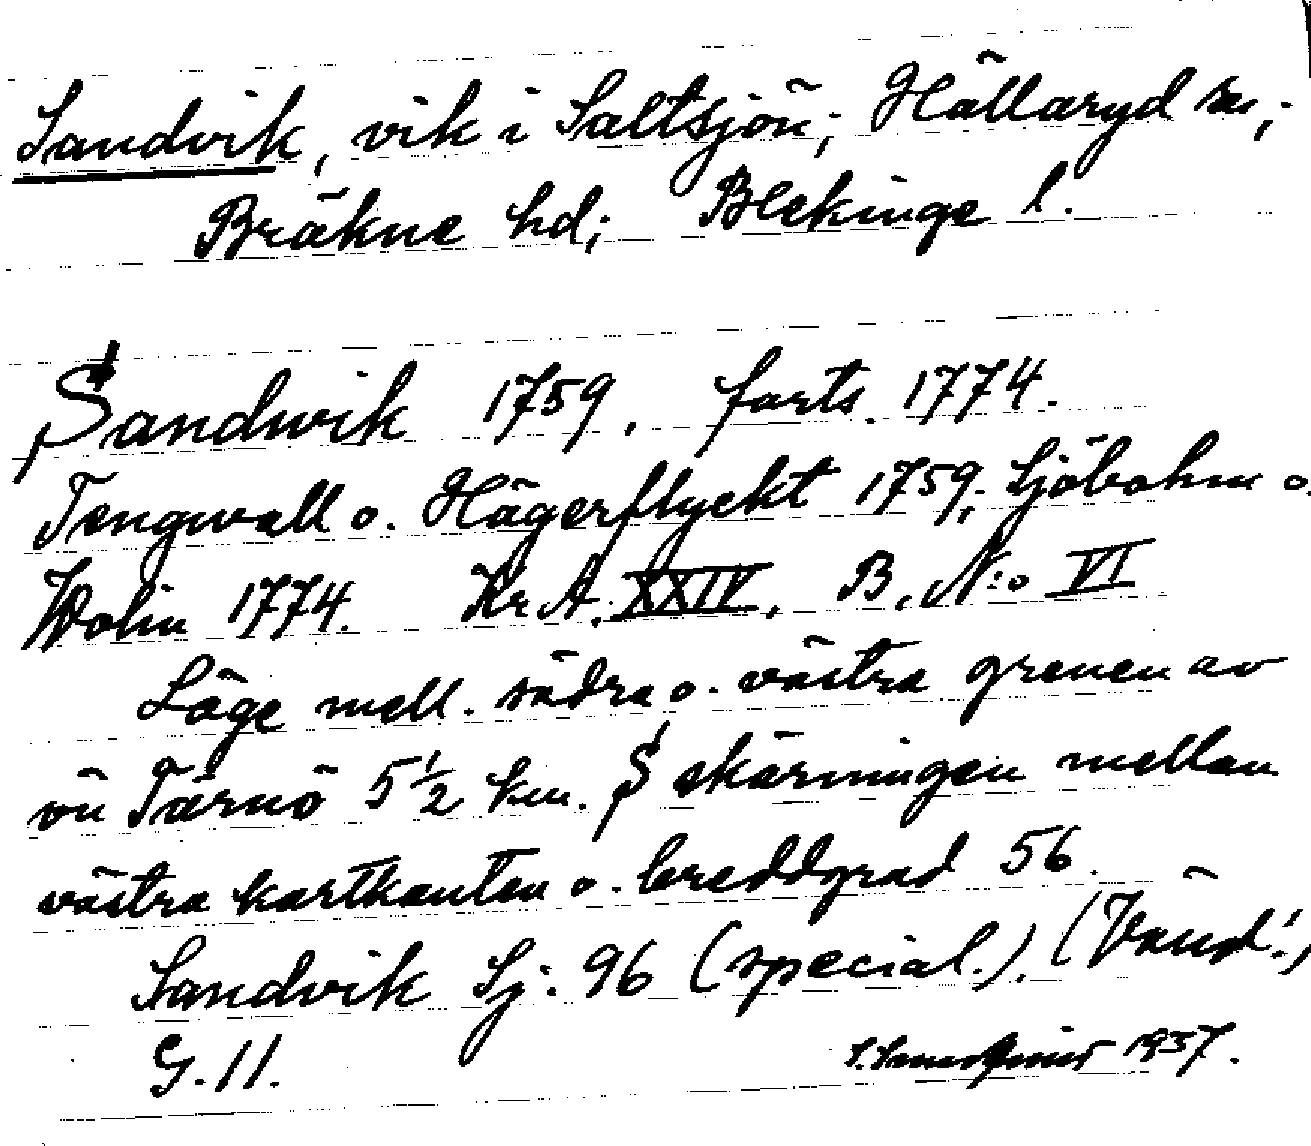 Sandvik, vik i Saltsjön; Hällaryd sn,;
Bräkne hd; Blekinge l.
Sandwik 1759, forts. 1774.
Tengwall o. Hägerflyckt 1759; Sjöbohm o.
Wolin 1774. Kr. A. XXIV, B, N:o VI
Läge mell. södra o. västra grenen av
ön Tärnö 5 1/2 km. S skärningen mellan
västra kartkanten o. breddgrad 56.
Sandvik Sj: 96 (special.). (Vänd!)
G. 11. 1937.